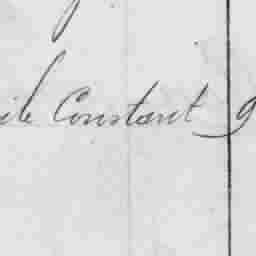 ile Constant